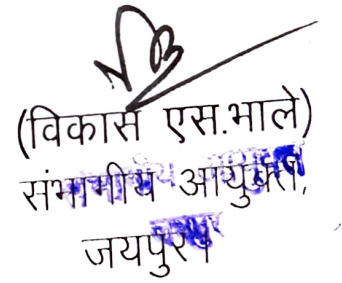 (विकास एस.भाले)
संभागीय आयुक्त,
जयपुर